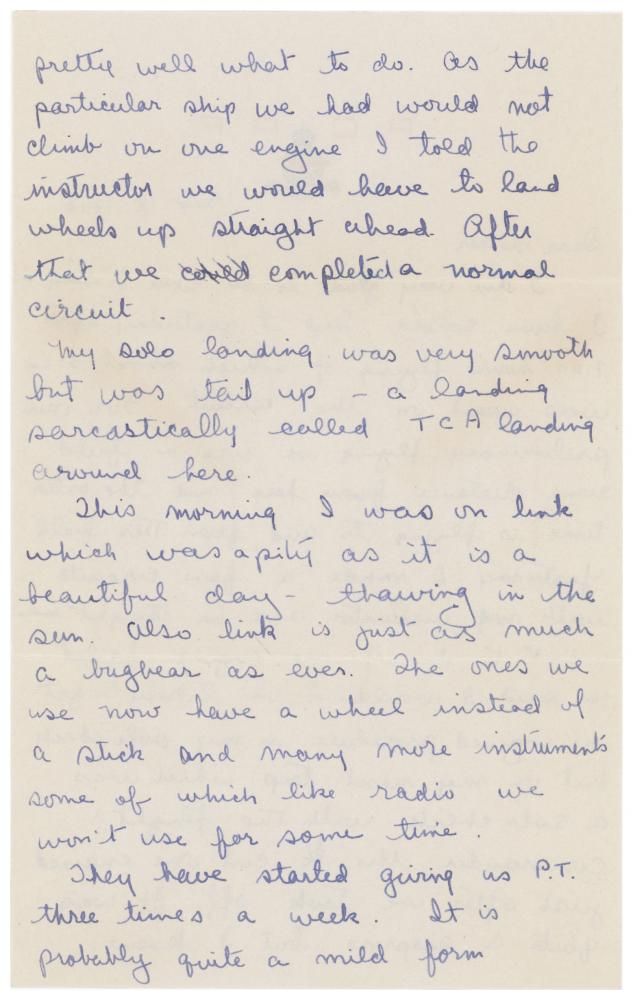 pretty well what to do. As the
particular ship we had would not
climb on one engine I told the
instructor we would have to land
wheels up straight ahead. After
that we completed a normal
circuit.
My solo landing was very smooth
but was tail up - a landing
sarcastically called TCA landing
around here.
This morning I was on link
which was a pity as it is a
beautiful day - thawing in the
sun. Also link is just as much
a bugbear as ever. The ones we
use now have a wheel instead of
a stick and many more instruments
some of which like radio we
won't use for some time.
They have started giving us P.T.
three times a week. It is
probably quite a mild form